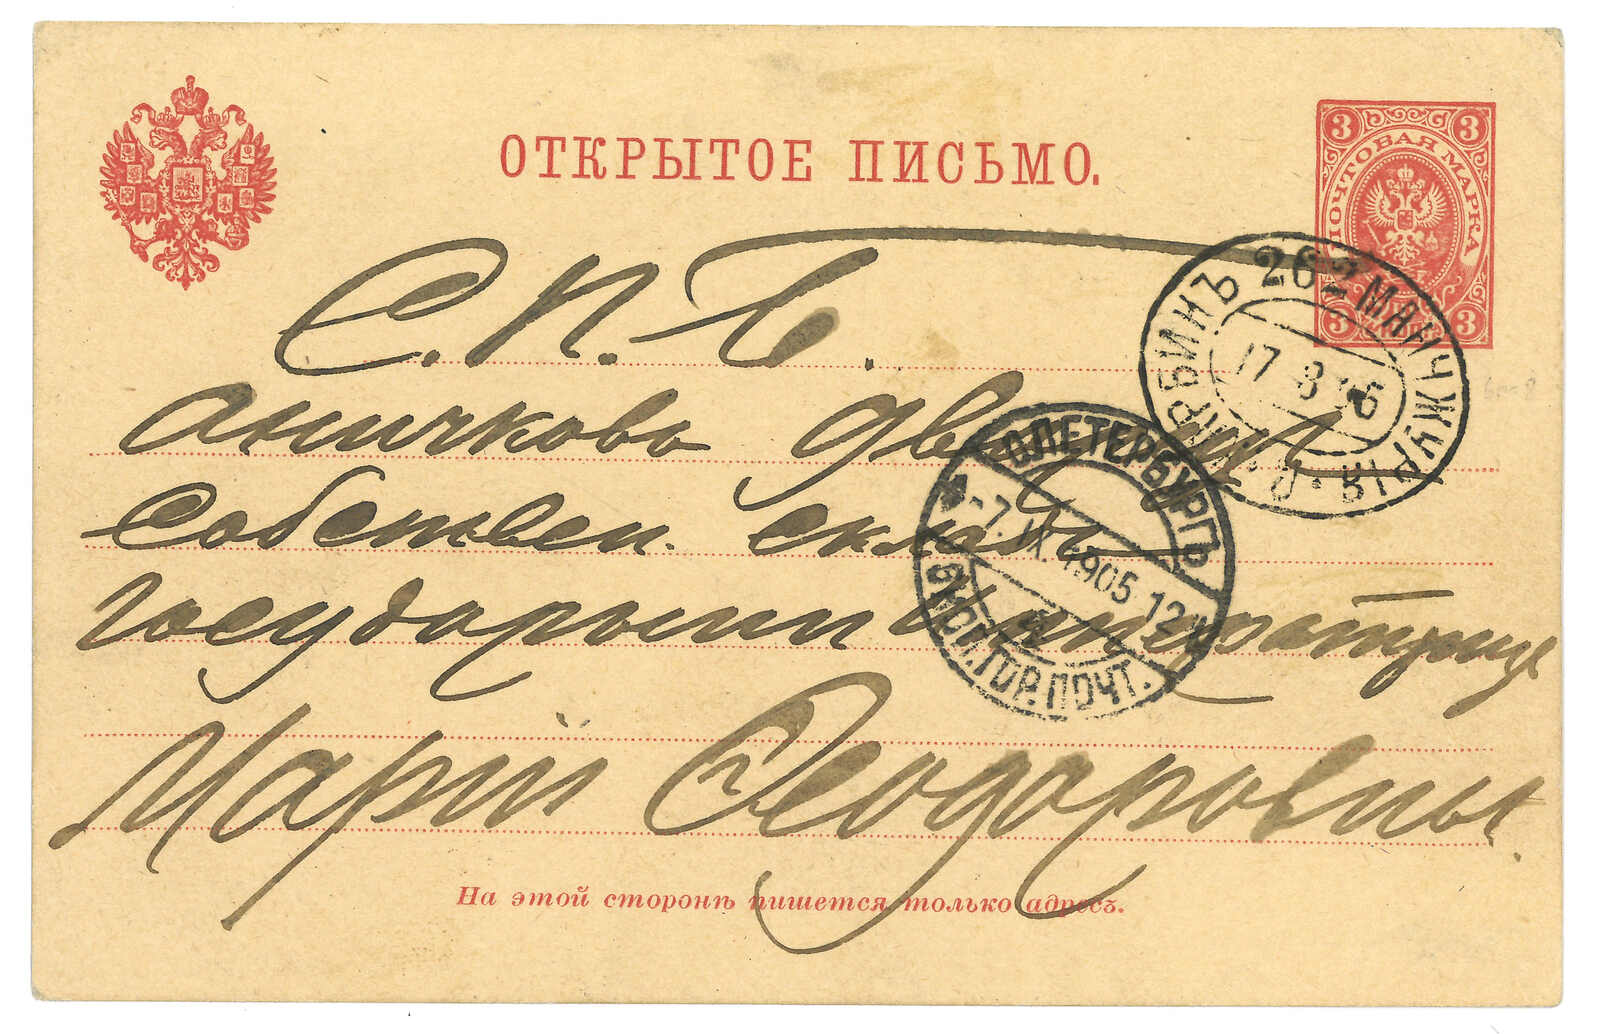 ОТКРЫТОЕ ПИСЬМО.
3 3
ПОЧТОВАЯ МАРКА
3 3
С. П. Б.
Аничковъ дворецъ
Собствен. складъ
Государыни Императрицы
Маріи Ѳеодоровны.
ХАРБИНЪ 262 МАНЧЖУРІЯ
17 8
С.ПЕТЕРБУРГЪ
-7.IX.1905 12
ГОР.ПОЧТ.
На этой сторонѣ пишется только адресъ.